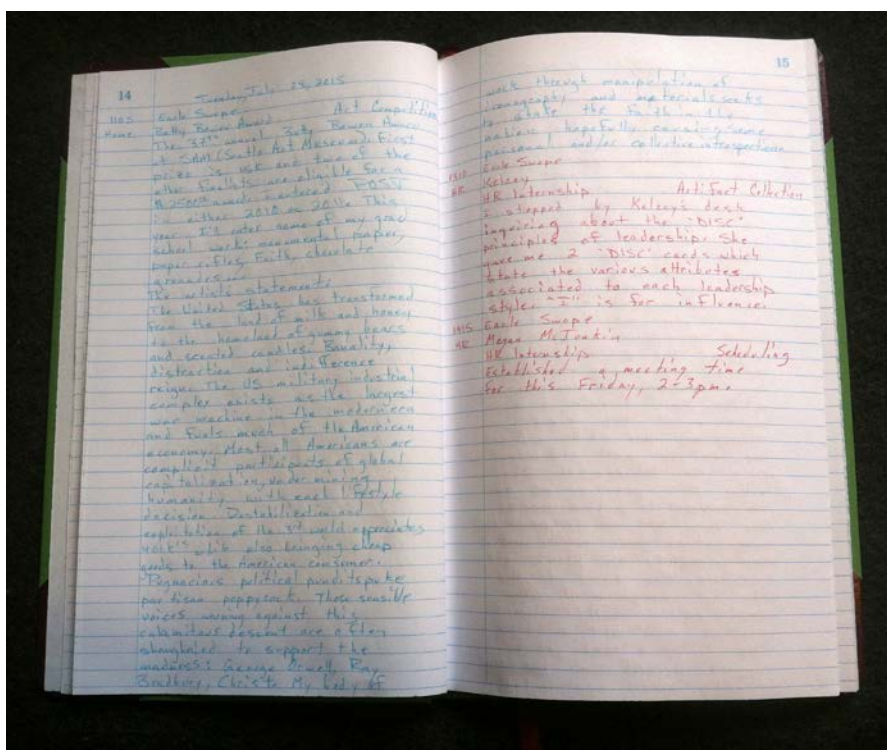 14
Tuesday, July 28, 2015
1105 Earle Swope
Home Betty Bowen Award Art Competition
The 37th annual Betty Bowen Award
at SAM (Seattle Art Museum). First
prize is 15K and two of the
other finalists are eligible for a
$2500 awards. I entered
in either 2010 or 2011. This
year I'll enter some of my grad
school work: monumental paper,
paper rifles, Faith, chocolate
grenades...
The artist's statement:
The United States has transformed
from the land of milk and honey
to the homeland of gummy bears
and scented candles. Banality,
distraction and indifference
reign. The US military industrial
complex exists as the largest
war machine in the modern era
and fuels much of the American
economy. Most all Americans are
complicit participants of global
capitalization, undermining
humanity with each lifestyle
decision. Destabilization and
exploitation of the 3rd world appreciates
401k's while also bringing cheap
goods to the American consumer.
Pugnacious political pundits puke
partisan poppycock. Those sensible
voices warning against this
calamitous descent are often
shanghaied to support the
madness: George Orwell, Ray
Bradbury, Christ. My body of
15
work through manipulation of
iconography and materials seeks
to state the faith in the
nation, hopefully causing some
personal and/or collective introspection.
1310 Earle Swope
HR Kelsey
HR Internship Artifact Collection
I stopped by Kelsey's desk
inquiring about the "DISC"
principles of leadership. She
gave me 2 "DISC" cards which
state the various attributes
associated to each leadership
style. "I" is for influence.
1415 Earle Swope
HR Megan
HR Internship Scheduling
Established a meeting time
for this Friday, 2-3pm.